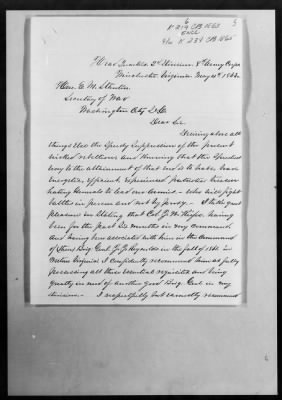 6
K 219 CB 1865
ENCL
K 234 CB 1865
5
Head Quarters 2d Division 8th Army Corps
Winchester Virginia May 4th 1863.
Hon. E. M. Stanton.
Secretary of War
Washington City D.C.
Dear Sir
Desiring above all
things else the Speedy Suppression of the present
wicked rebellion and knowing that the Speediest
way to the attainment of that end is to have brave
energetic, efficient experienced patriotic treason
hating Generals to lead our Armies – who will fight
battles in person and not by proxy. – I take great
pleasure in stating that Col. J. W. Keifer, having
been for the past six months in my command.
And having been associated with him in the command
of Brig. Genl. J. J. Reynolds in the fall of 1861 in
Western Virginia I confidently recommend him as fully
possessing all those essential requisites and being
greatly in need of another good Brig. Genl in my
division. – I respectfully but earnestly recommend
6